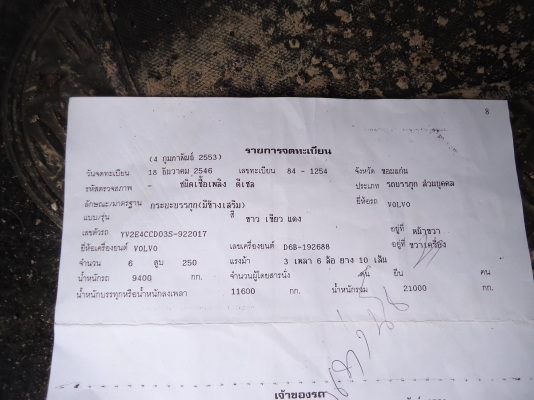 8
รายการจดทะเบียน
(4 กุมภาพันธ์ 2553)
วันจดทะเบียน 18 ธันวาคม 2546 เลขทะเบียน 84 - 1254 จังหวัด ขอนแก่น
รหัสตรวจสภาพ - ชนิดเชื้อเพลิง ดีเซล ประเภท รถบรรทุก ส่วนบุคคล
ลักษณะ/มาตรฐาน กระบะบรรทุก(มีข้างเสริม) ยี่ห้อรถ VOLVO
แบบ/รุ่น สี ขาว เขียว แดง
เลขตัวรถ YV2E4CCD03S-922017 อยู่ที่ หน้าขวา
ยี่ห้อเครื่องยนต์ VOLVO เลขเครื่องยนต์ D6B-192688 อยู่ที่ ขวาเครื่อง
จำนวน 6 สูบ 250 แรงม้า 3 เพลา 6 ล้อ ยาง 10 เส้น
น้ำหนักรถ 9400 กก. จำนวนผู้โดยสารนั่ง คน ยืน คน
น้ำหนักบรรทุกหรือน้ำหนักลงเพลา 11600 กก. น้ำหนักรวม 21000 กก.
เจ้าของรถ